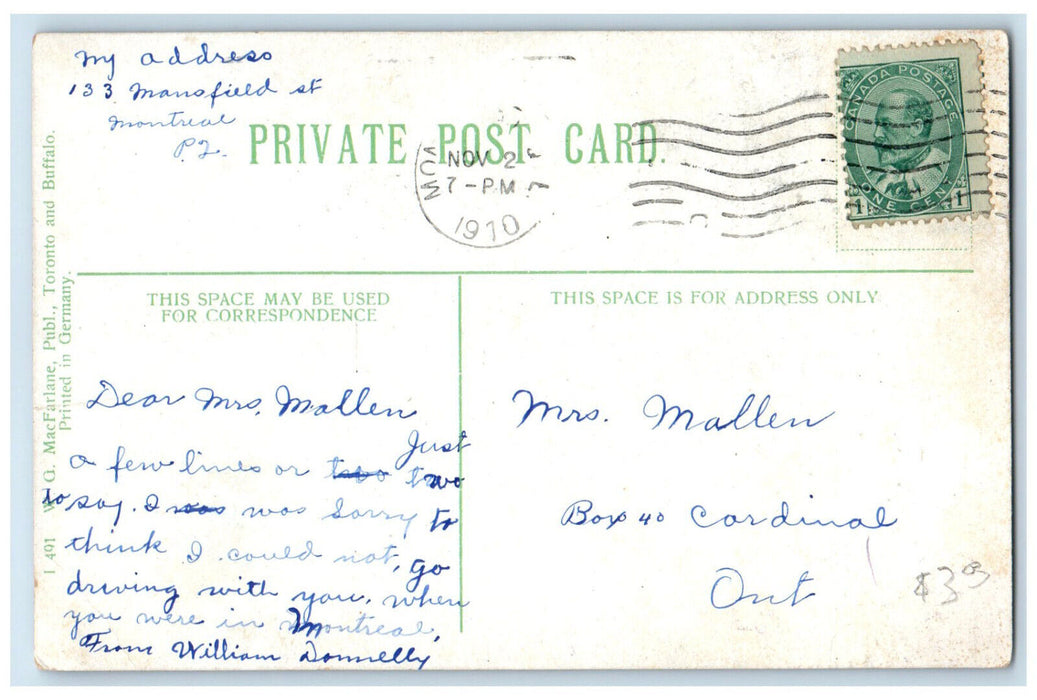 My address
133 Mansfield st
Montreal
P2.
PRIVATE POST CARD.
NOV 2
7-PM
1910
CANADA POSTAGE
ONE CENT
1 1
I 491 W. G. MacFarlane, Publ., Toronto and Buffalo.
Printed in Germany.
THIS SPACE MAY BE USED
FOR CORRESPONDENCE
THIS SPACE IS FOR ADDRESS ONLY
Dear Mrs. Mallen
Just
a few lines or two two
to say. I was was sorry to
think I could not, go
driving with you, when
you were in Montreal,
From William Donnelly
Mrs. Mallen
Box 40 Cardinal
Ont
$3